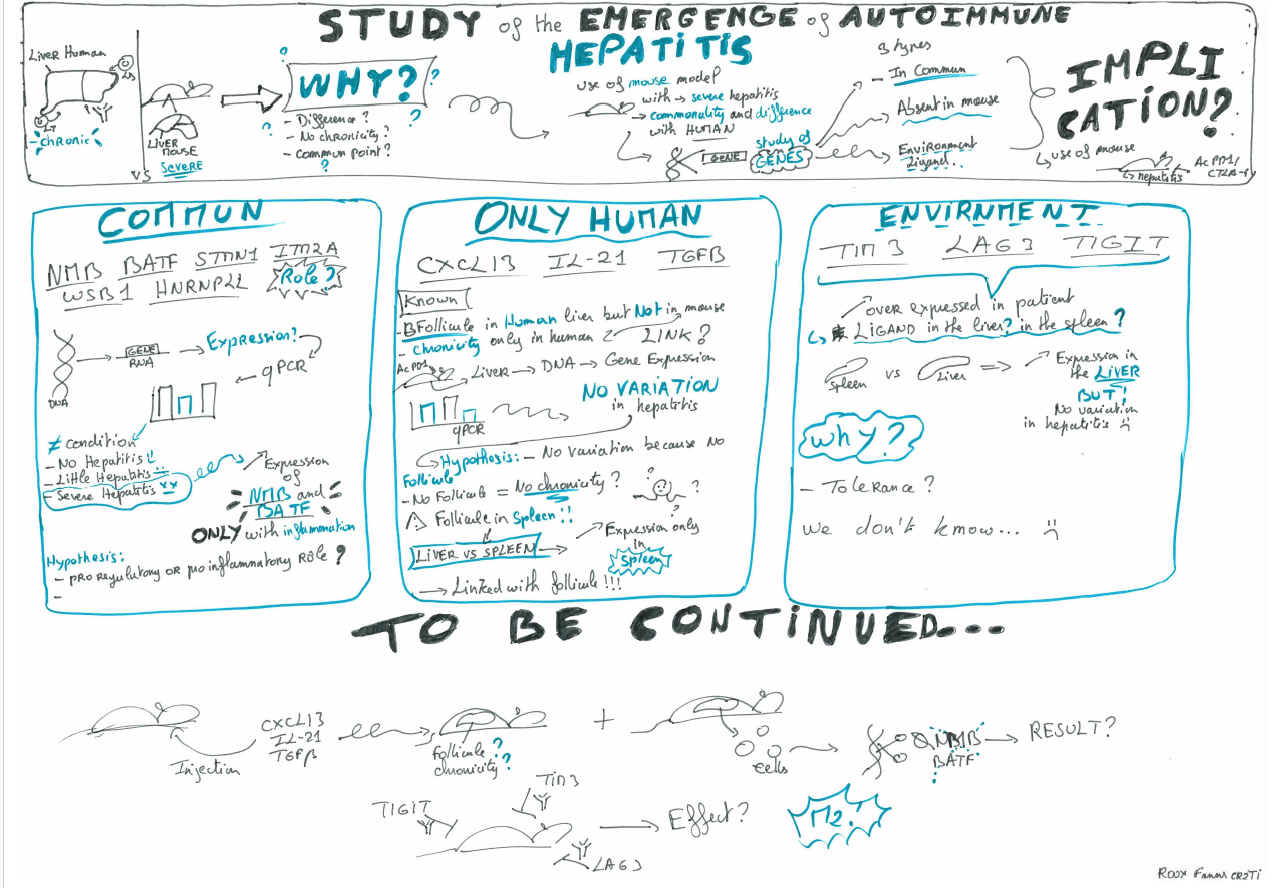 STUDY of the EMERGENGE of AUTOIMMUNE
HEPATITIS
Liver Human
- chronic
VS
LIVER MOUSE
SEVERE
WHY?
? ? ? ? ?
- Difference?
- No chronicity?
- Commun point?
?
use of mouse model
with → severe hepatitis
→ commonality and difference
with HUMAN
GENE
study of
GENES
3 types
- In Commun
Absent in mouse
Environment
Ligand..
IMPLI
CATION?
↳ use of mouse
↳ hepatitis
AcPD1/
CTLA-4
COMMUN
NMB BATF STMN1 ITM2A
WSB1 HNRNPLL
Role?
DNA
GENE
RNA
Expression?
qPCR
≠ condition
- No Hepatitis
- Little Hepatitis
- Severe Hepatitis xx
Expression
of
NMB and
BATF
ONLY with inflammation
Hypothesis:
- pro regulatory OR pro inflammatory Rôle?
-
ONLY HUMAN
CXCL13 IL-21 TGFB
Known
- BFollicule in Human liver but Not in mouse
- chronicity only in human LINK?
AcPD1
Liver → DNA → Gene Expression
qPCR
NO VARIATION
in hepatitis
Hypothesis: - No variation because No
Follicule
- No Follicule = No chronicity?
? ? ?
⚠ Follicule in Spleen!!
LIVER VS SPLEEN
Expression only
in
Spleen
→ Linked with follicule!!!
ENVIRNMENT
TIM3 LAG3 TIGIT
over expressed in patient
LIGAND in the liver? in the spleen?
Spleen vs Liver ⇒
Expression in
the LIVER
BUT!
No variation
in hepatitis :(
why?
- Tolerance?
we don't know... :(
TO BE CONTINUED...
Injection
CXCL13
IL-21
TGFβ
follicule?
chronicity?
+
cells
NMB
BATF
RESULT?
TIGIT
TIM3
LAG3
Effect?
M2!